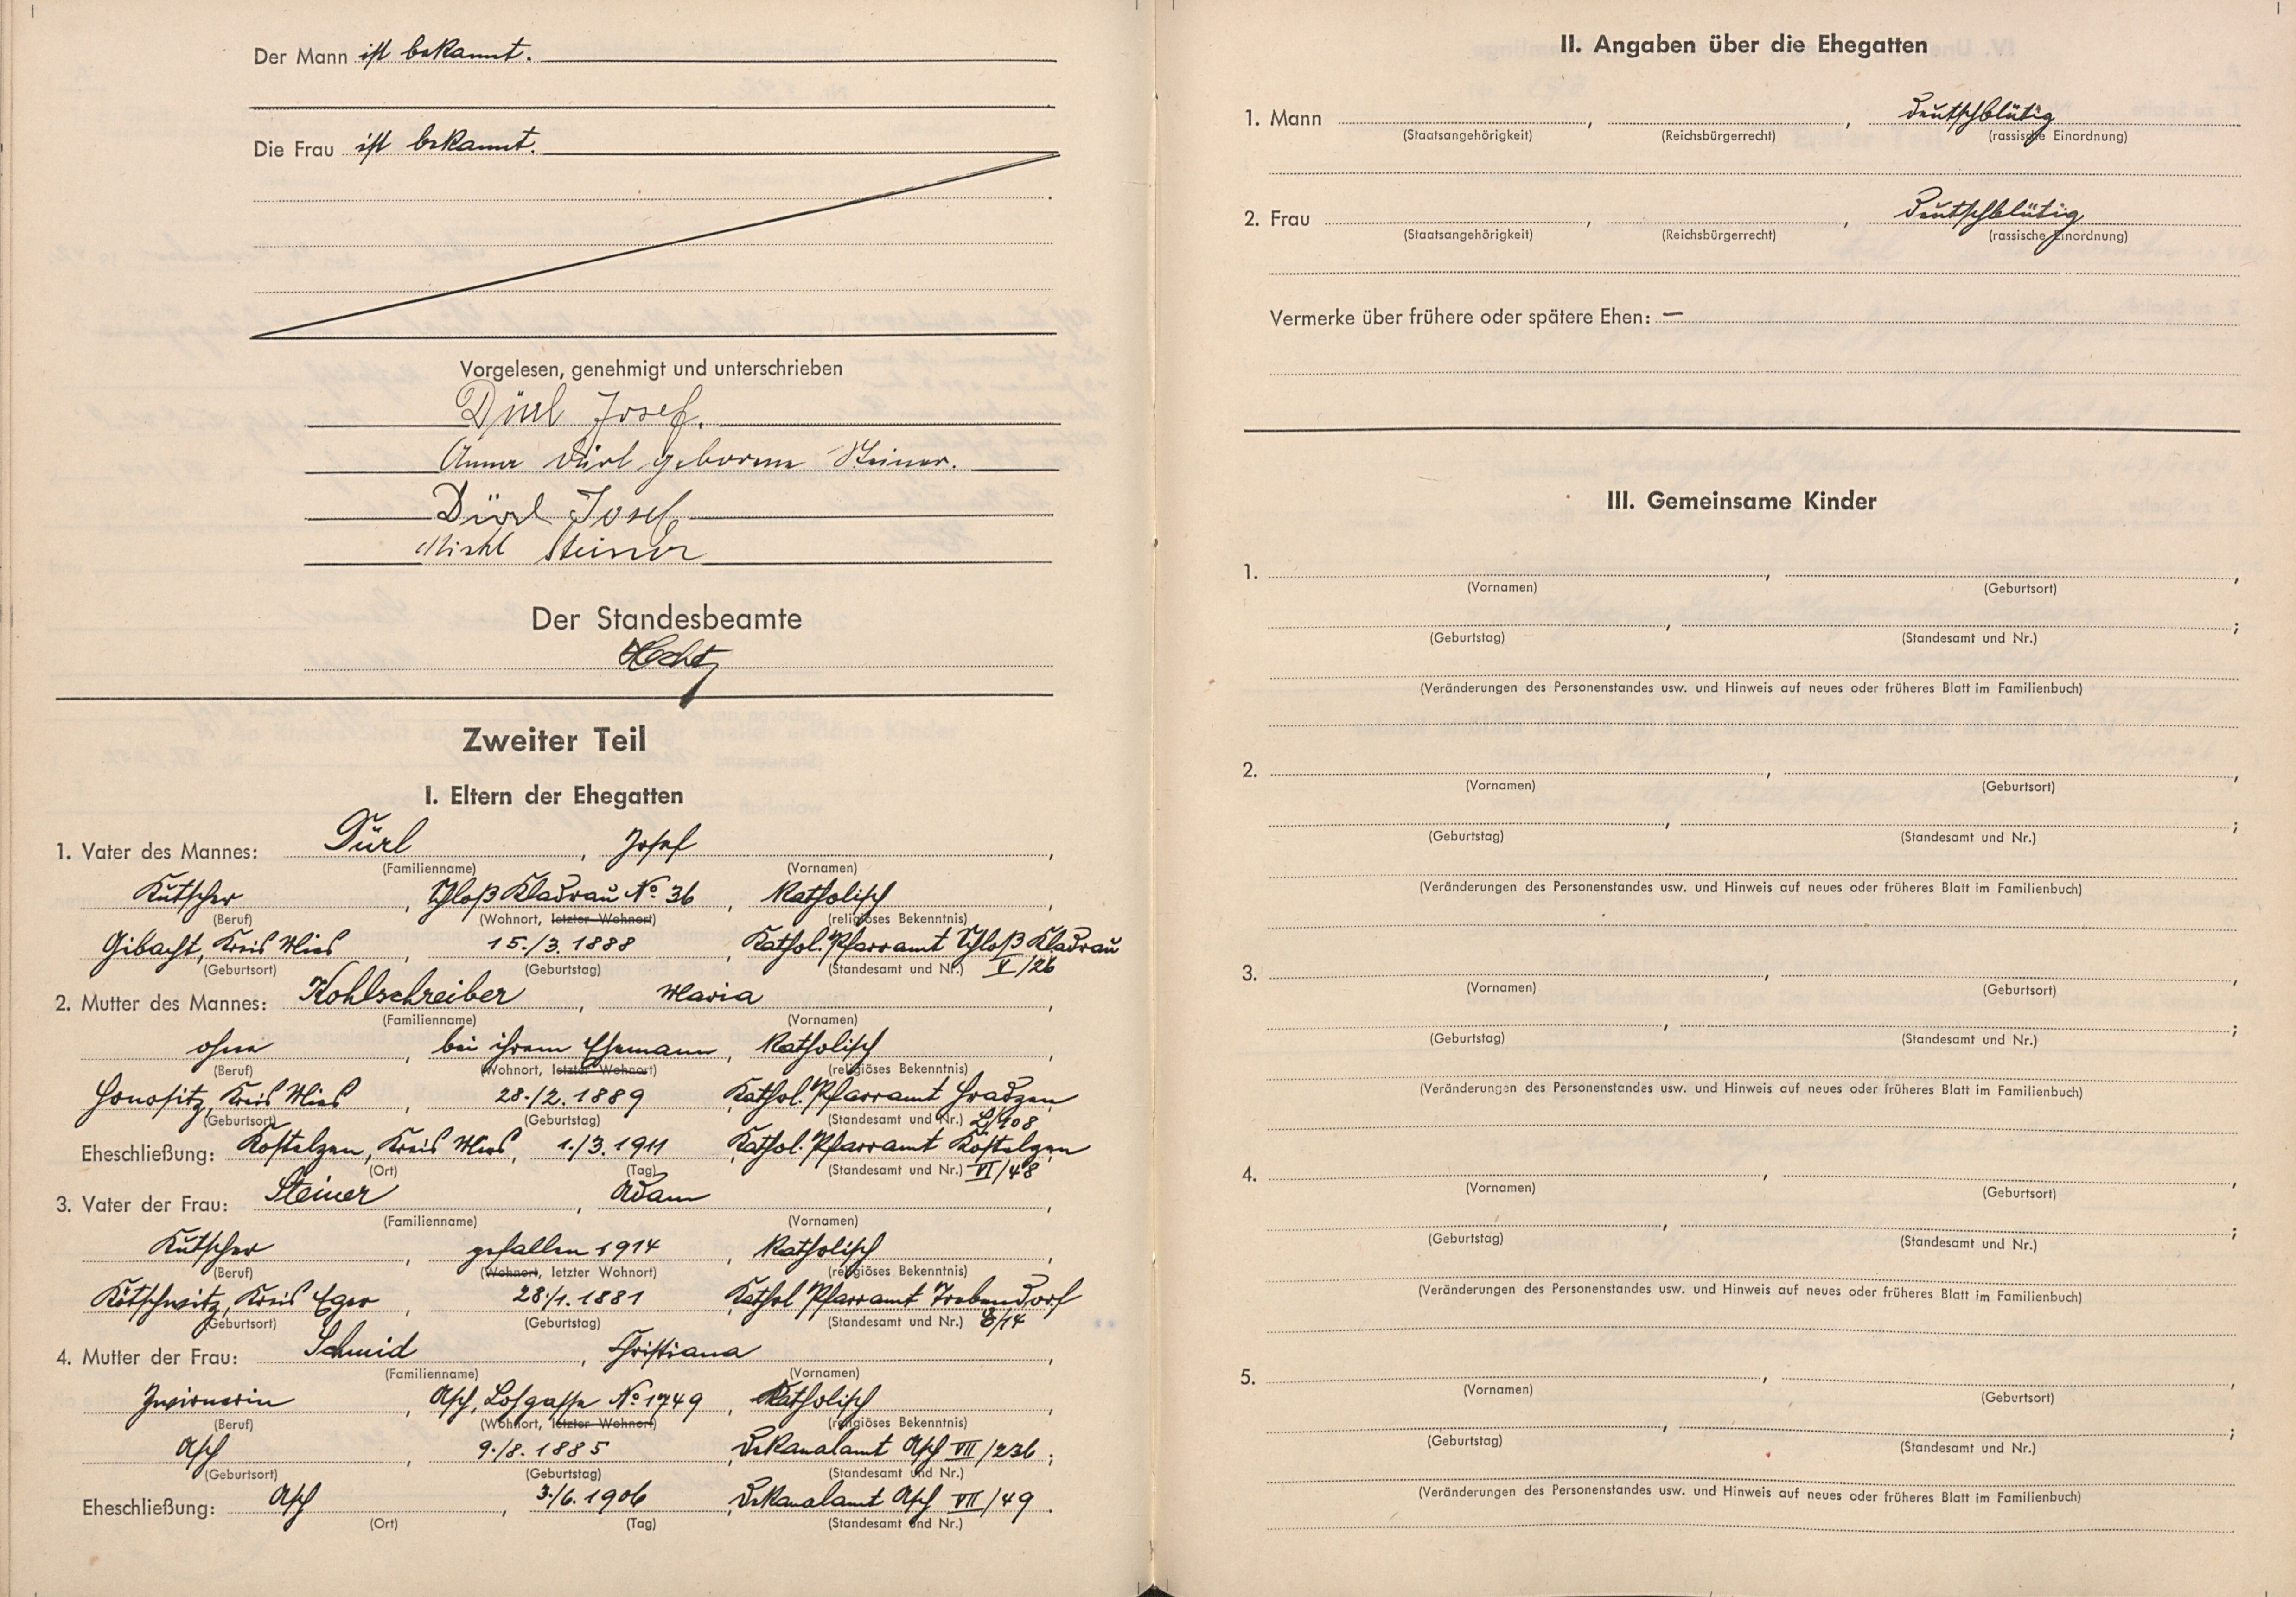 Der Mann ist bekannt.
Die Frau ist bekannt.
Vorgelesen, genehmigt und unterschrieben
Dürl Josef.
Anna Dürl geborene Steiner.
Dürl Josef
Steiner
Der Standesbeamte
Zweiter Teil
I. Eltern der Ehegatten
1. Vater des Mannes: Dürl, Josef,
(Familienname) (Vornamen)
Kutscher, Schloß Kladrau No 36, Katholisch,
(Beruf) (Wohnort, letzter Wohnort) (religiöses Bekenntnis)
Gibacht, Kreis Mies, 15./3. 1888, Kathol. Pfarramt Schloß Kladrau
(Geburtsort) (Geburtstag) (Standesamt und Nr.) V/26
2. Mutter des Mannes: Kohlschreiber, Maria,
(Familienname) (Vornamen)
ohne, bei ihrem Ehemann, Katholisch,
(Beruf) (Wohnort, letzter Wohnort) (religiöses Bekenntnis)
Honositz, Kreis Mies, 28./2. 1889, Kathol. Pfarramt Hradzen
(Geburtsort) (Geburtstag) (Standesamt und Nr.)
Eheschließung: Kostelzen, Kreis Mies, 1./3. 1911, Kathol. Pfarramt Kostelzen
(Ort) (Tag) (Standesamt und Nr.) VI/48
3. Vater der Frau: Steiner, Adam,
(Familienname) (Vornamen)
Kutscher, gefallen 1914, Katholisch,
(Beruf) (Wohnort, letzter Wohnort) (religiöses Bekenntnis)
Kötschwitz, Kreis Eger, 28./1. 1881, Kathol Pfarramt Trebendorf
(Geburtsort) (Geburtstag) (Standesamt und Nr.)
4. Mutter der Frau: Schmid, Christiana,
(Familienname) (Vornamen)
Zwirnerin, Asch, Lohgasse No 1749, Katholisch,
(Beruf) (Wohnort, letzter Wohnort) (religiöses Bekenntnis)
Asch, 9./8. 1885, Dekanalamt Asch VII/236;
(Geburtsort) (Geburtstag) (Standesamt und Nr.)
Eheschließung: Asch, 3./6. 1906, Dekanalamt Asch VII/49.
(Ort) (Tag) (Standesamt und Nr.)
II. Angaben über die Ehegatten
1. Mann , , Deutschblütig
(Staatsangehörigkeit) (Reichsbürgerrecht) (rassische Einordnung)
2. Frau , , Deutschblütig
(Staatsangehörigkeit) (Reichsbürgerrecht) (rassische Einordnung)
Vermerke über frühere oder spätere Ehen: —
III. Gemeinsame Kinder
1. , ,
(Vornamen) (Geburtsort)
, ;
(Geburtstag) (Standesamt und Nr.)
(Veränderungen des Personenstandes usw. und Hinweis auf neues oder früheres Blatt im Familienbuch)
2. , ,
(Vornamen) (Geburtsort)
, ;
(Geburtstag) (Standesamt und Nr.)
(Veränderungen des Personenstandes usw. und Hinweis auf neues oder früheres Blatt im Familienbuch)
3. , ,
(Vornamen) (Geburtsort)
, ;
(Geburtstag) (Standesamt und Nr.)
(Veränderungen des Personenstandes usw. und Hinweis auf neues oder früheres Blatt im Familienbuch)
4. , ,
(Vornamen) (Geburtsort)
, ;
(Geburtstag) (Standesamt und Nr.)
(Veränderungen des Personenstandes usw. und Hinweis auf neues oder früheres Blatt im Familienbuch)
5. , ,
(Vornamen) (Geburtsort)
, ;
(Geburtstag) (Standesamt und Nr.)
(Veränderungen des Personenstandes usw. und Hinweis auf neues oder früheres Blatt im Familienbuch)